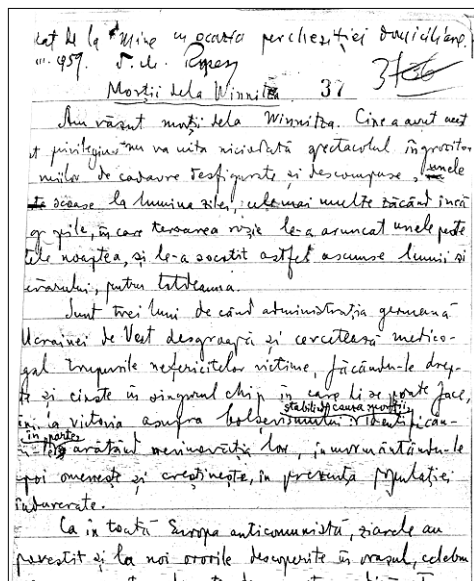 cat de la mine cu ocazia percheziției domiciliare
1959. 37
Morții dela Winnitza 37
Am văzut morții dela Winnitza. Cine a avut acest
t privilegiu nu va uita niciodată spectacolul îngrozitor
miilor de cadavre desfigurate și descompuse, unele
scoase la lumina zilei, cele mai multe zăcând încă
gropile, în care teroarea roșie le-a aruncat unele peste
tele noaptea, și le-a socotit astfel ascunse lumii și
evărului, pentru totdeauna.
Sunt trei luni de când administrația germană
Ucrainei de Vest desgroapă și cercetează medico-
gal trupurile nefericitelor victime, făcându-le drep-
te și cinste în singurul chip în care li se poate face,
a victoria asupra bolșevismului
stabilind cauza morții,
identificân-
în parte
arătând nevinovăția lor, înmormântându-le
poi omenește și creștinește, în prezența populației
îndurerate.
Ca în toată Europa anticomunistă, ziarele au
povestit și la noi ororile descoperite în orașul, celebru